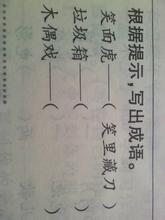 根据提示，写出成语。
笑面虎——（笑里藏刀）
垃圾箱——（
木偶戏——（